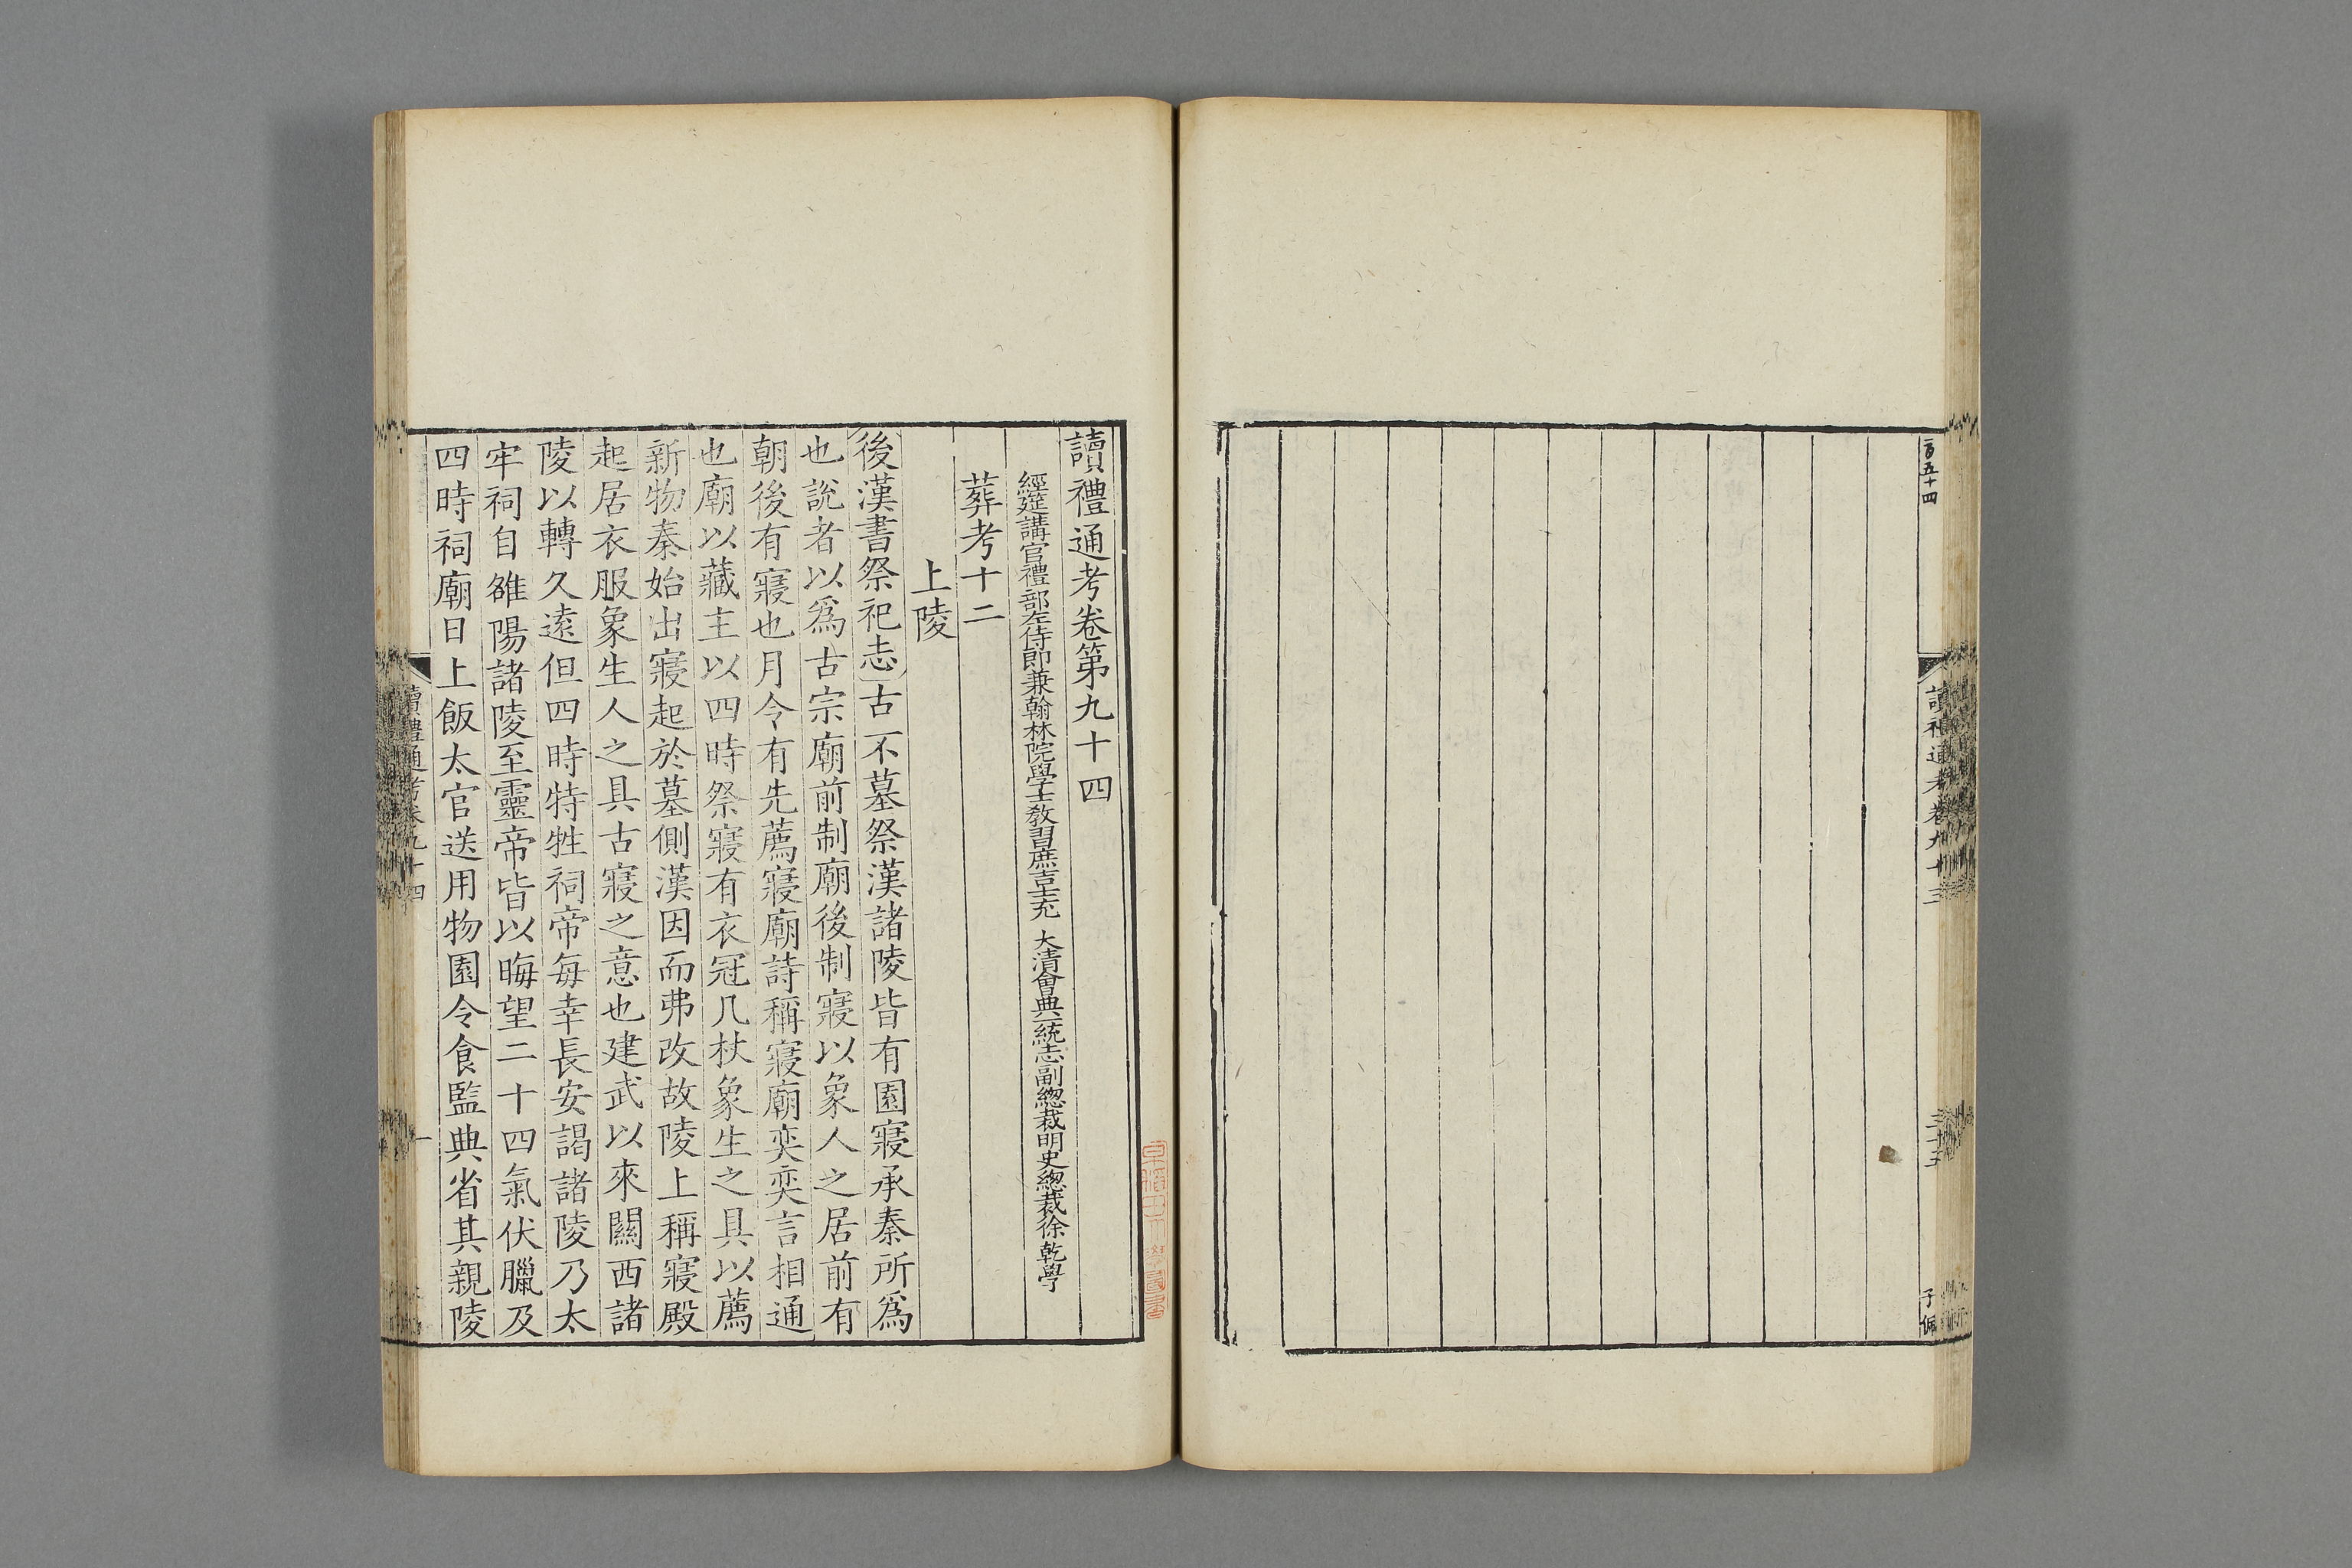 言五十四
讀禮通考卷九十三
三十五
子佩
讀禮通考卷第九十四
經筵講官禮部左侍郎兼翰林院學士教習庶吉士充 大清會典一統志副總裁明史總裁徐乾學
葬考十二
上陵
後漢書祭祀志古不墓祭漢諸陵皆有園寢承秦所爲
也說者以爲古宗廟前制廟後制寢以象人之居前有
朝後有寢也月令有先薦寢廟詩稱寢廟奕奕言相通
也廟以藏主以四時祭寢有衣冠几杖象生之具以薦
新物秦始出寢起於墓側漢因而弗改故陵上稱寢殿
起居衣服象生人之具古寢之意也建武以來關西諸
陵以轉久遠但四時特牲祠帝每幸長安謁諸陵乃太
牢祠自雒陽諸陵至靈帝皆以晦望二十四氣伏臘及
四時祠廟日上飯太官送用物園令食監典省其親陵
讀禮通考卷九十四
一